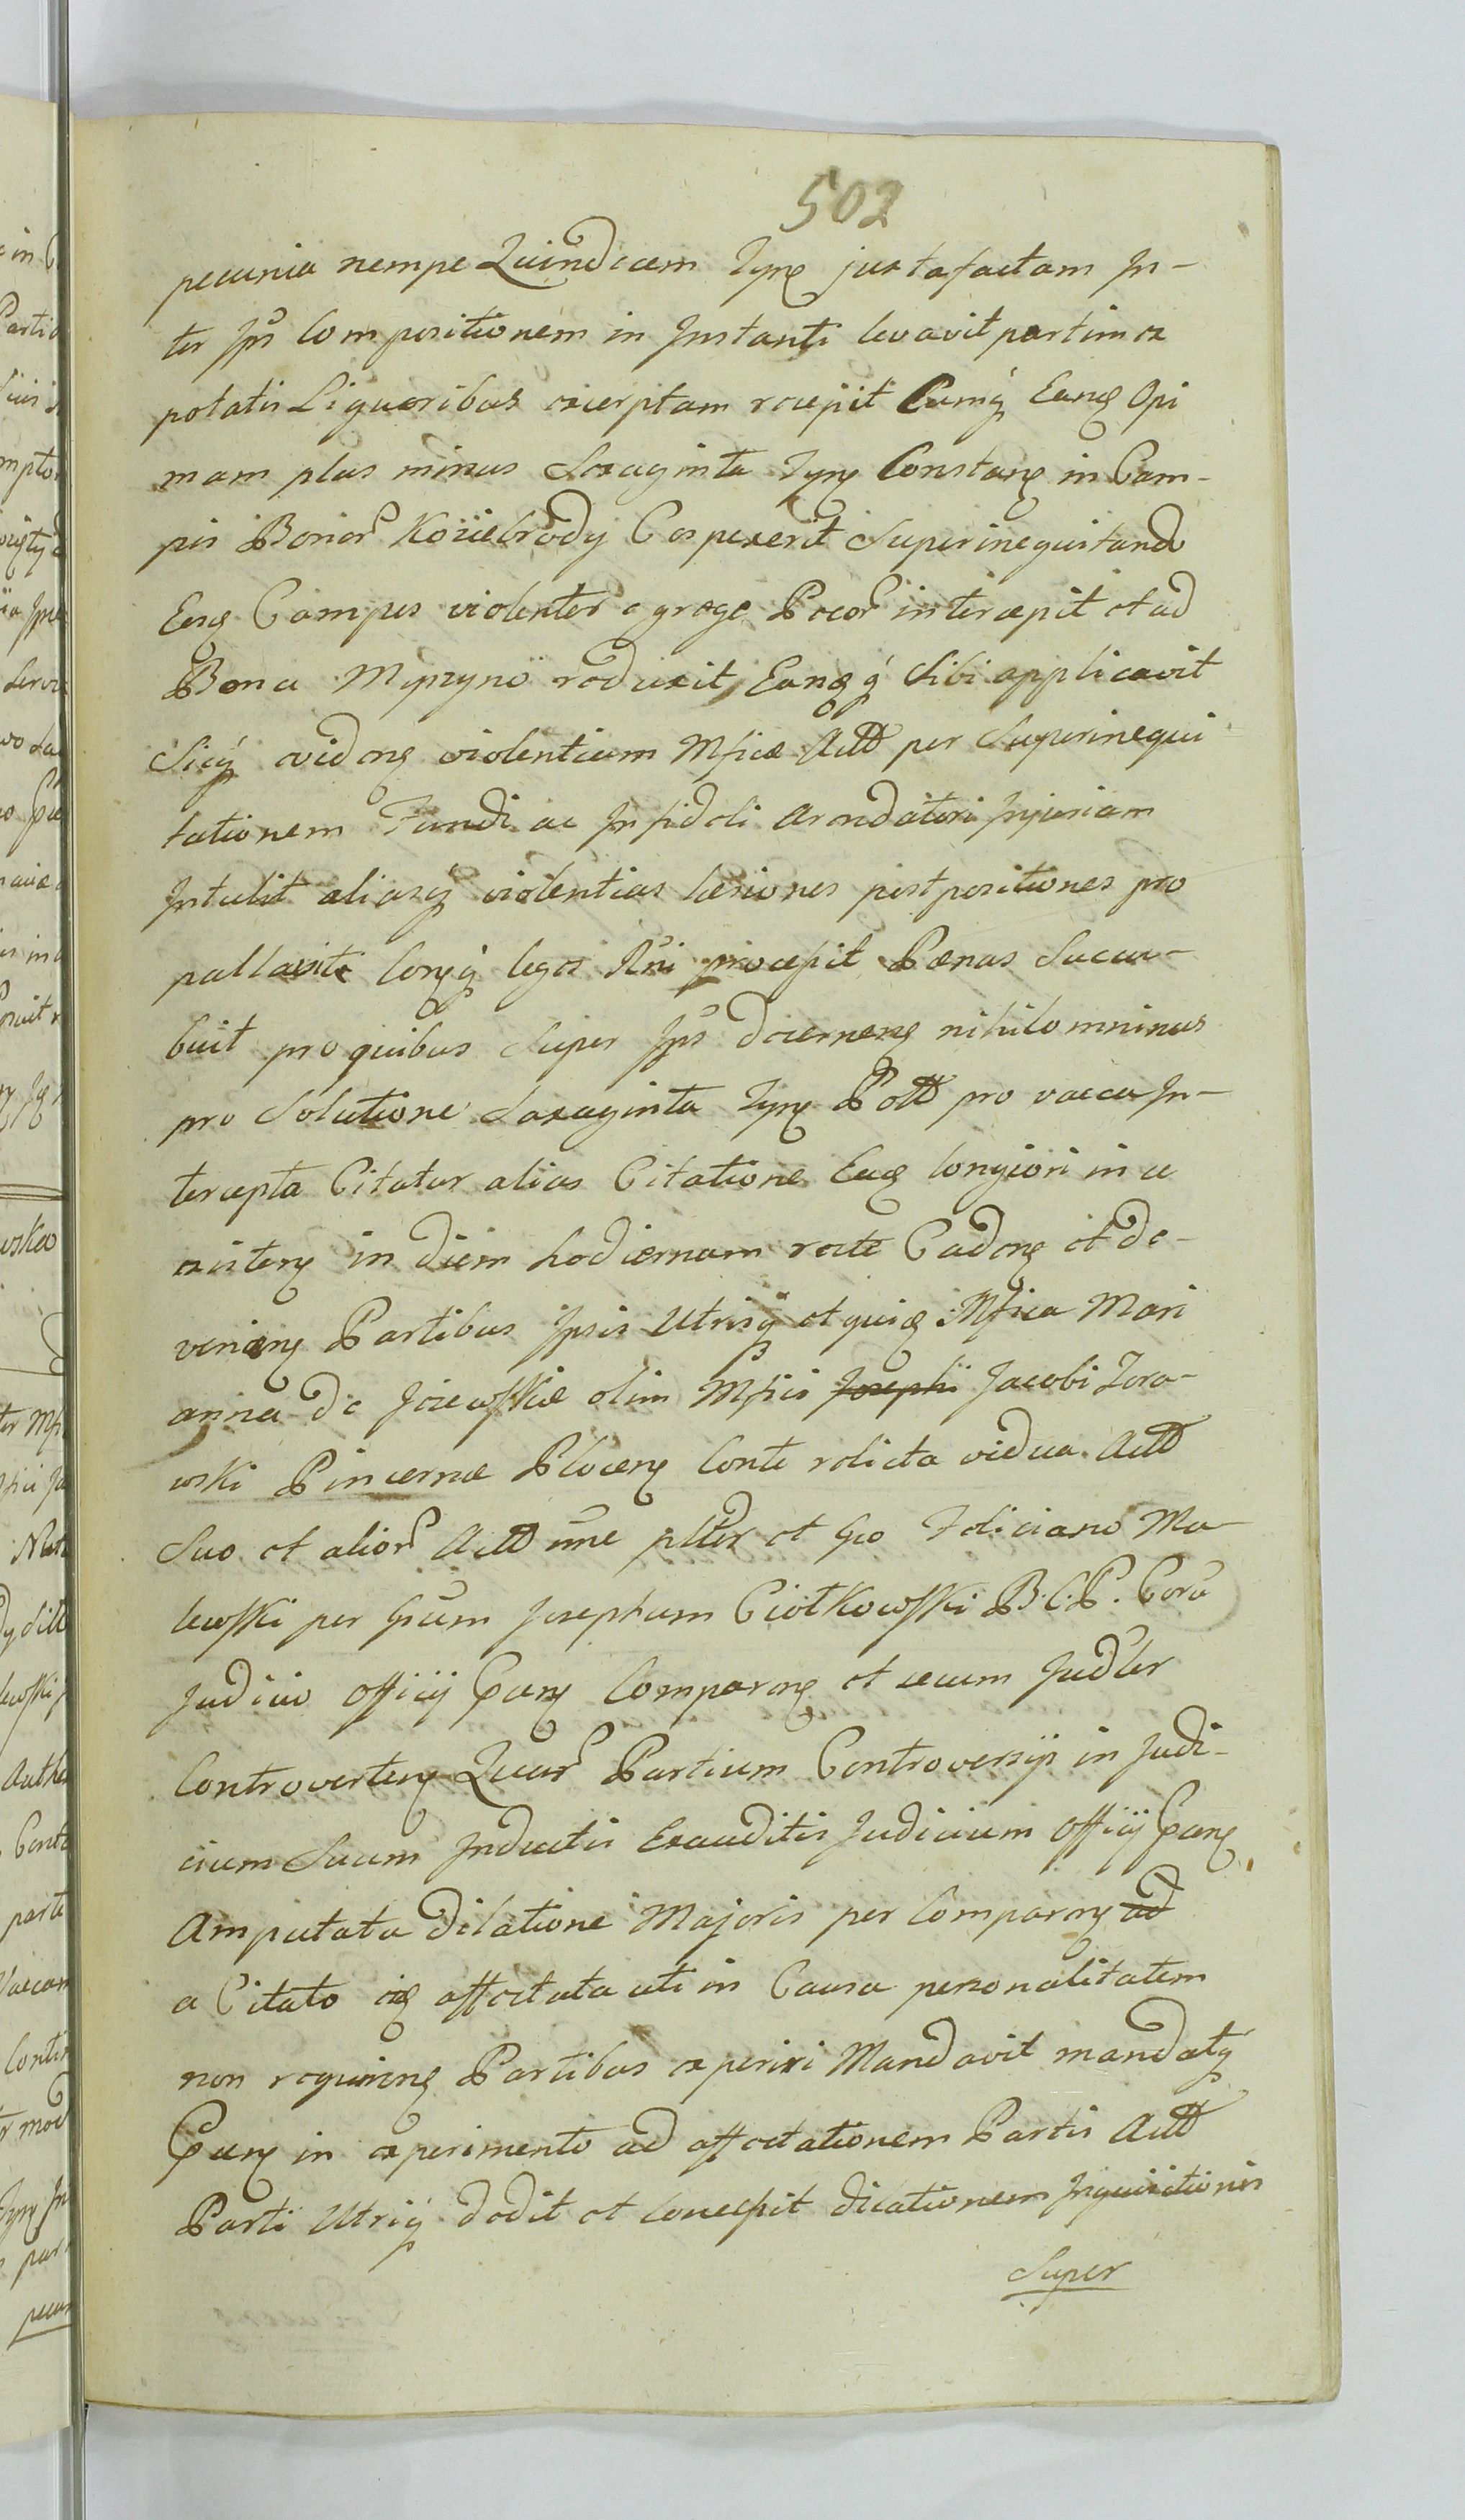 502
pecunia nempe Quindecem Tynf juxta factam In-
ter Ips Compositionem in Instanti levavit partim ex
potatis Liquoribus excerptam recepit Cumq Eand Opi
mam plus minus Sexaginta Tynf Constan in Cam-
pis Bonor Koziebrody Conspexerit Superinequitando
Eos Campos violenter e grege Pecor intercepit et ad
Bona Myszyno reduxit, Eandq Sibi applicavit
Sicq eviden violentiam Mficae Actt per Superinequi
tationem Fundi ac Infideli Arendatori Injuriam
Intulit aliasq violentias laesiones postpositiones pro
pallavit Consq leges Rni praecepit Paenas Succu-
buit pro quibus Super Ips decernen nihilominus
pro Solutione Sexaginta Tynf Pott pro vacca In-
tercepta Citatur alias Citatione Ead longiori in se
existen in diem hodiernam recte Caden et de-
venien Partibus Ipsis Utrisq et quid Mfica Mari
anna de Jezewskie olim Mfici Josephi Jacobi Zora-
wski Pincernae Plocen Conte relicta vidua Actt
Suo et alior Actt nne plter et Gso Feliciano Ma-
lewski per Gsum Josephum Ciołkowski B.C.P. Cora
Judicio Officij Cap Comparen et secum Judler
Controverten Quar Partium Controversijs in Judi-
cium Suum Inductis Exauditis Judicium Officij Cap
Amputata dilatione Majoris per Comparen ad
a Citato affectata uti in Causa personalitatem
non requiren Partibus experiri Mandavit mandatq
in experimento ad affectationem Partis Actt
Parti Utriq dedit et Concessit dilationem Inquisitionis
Super